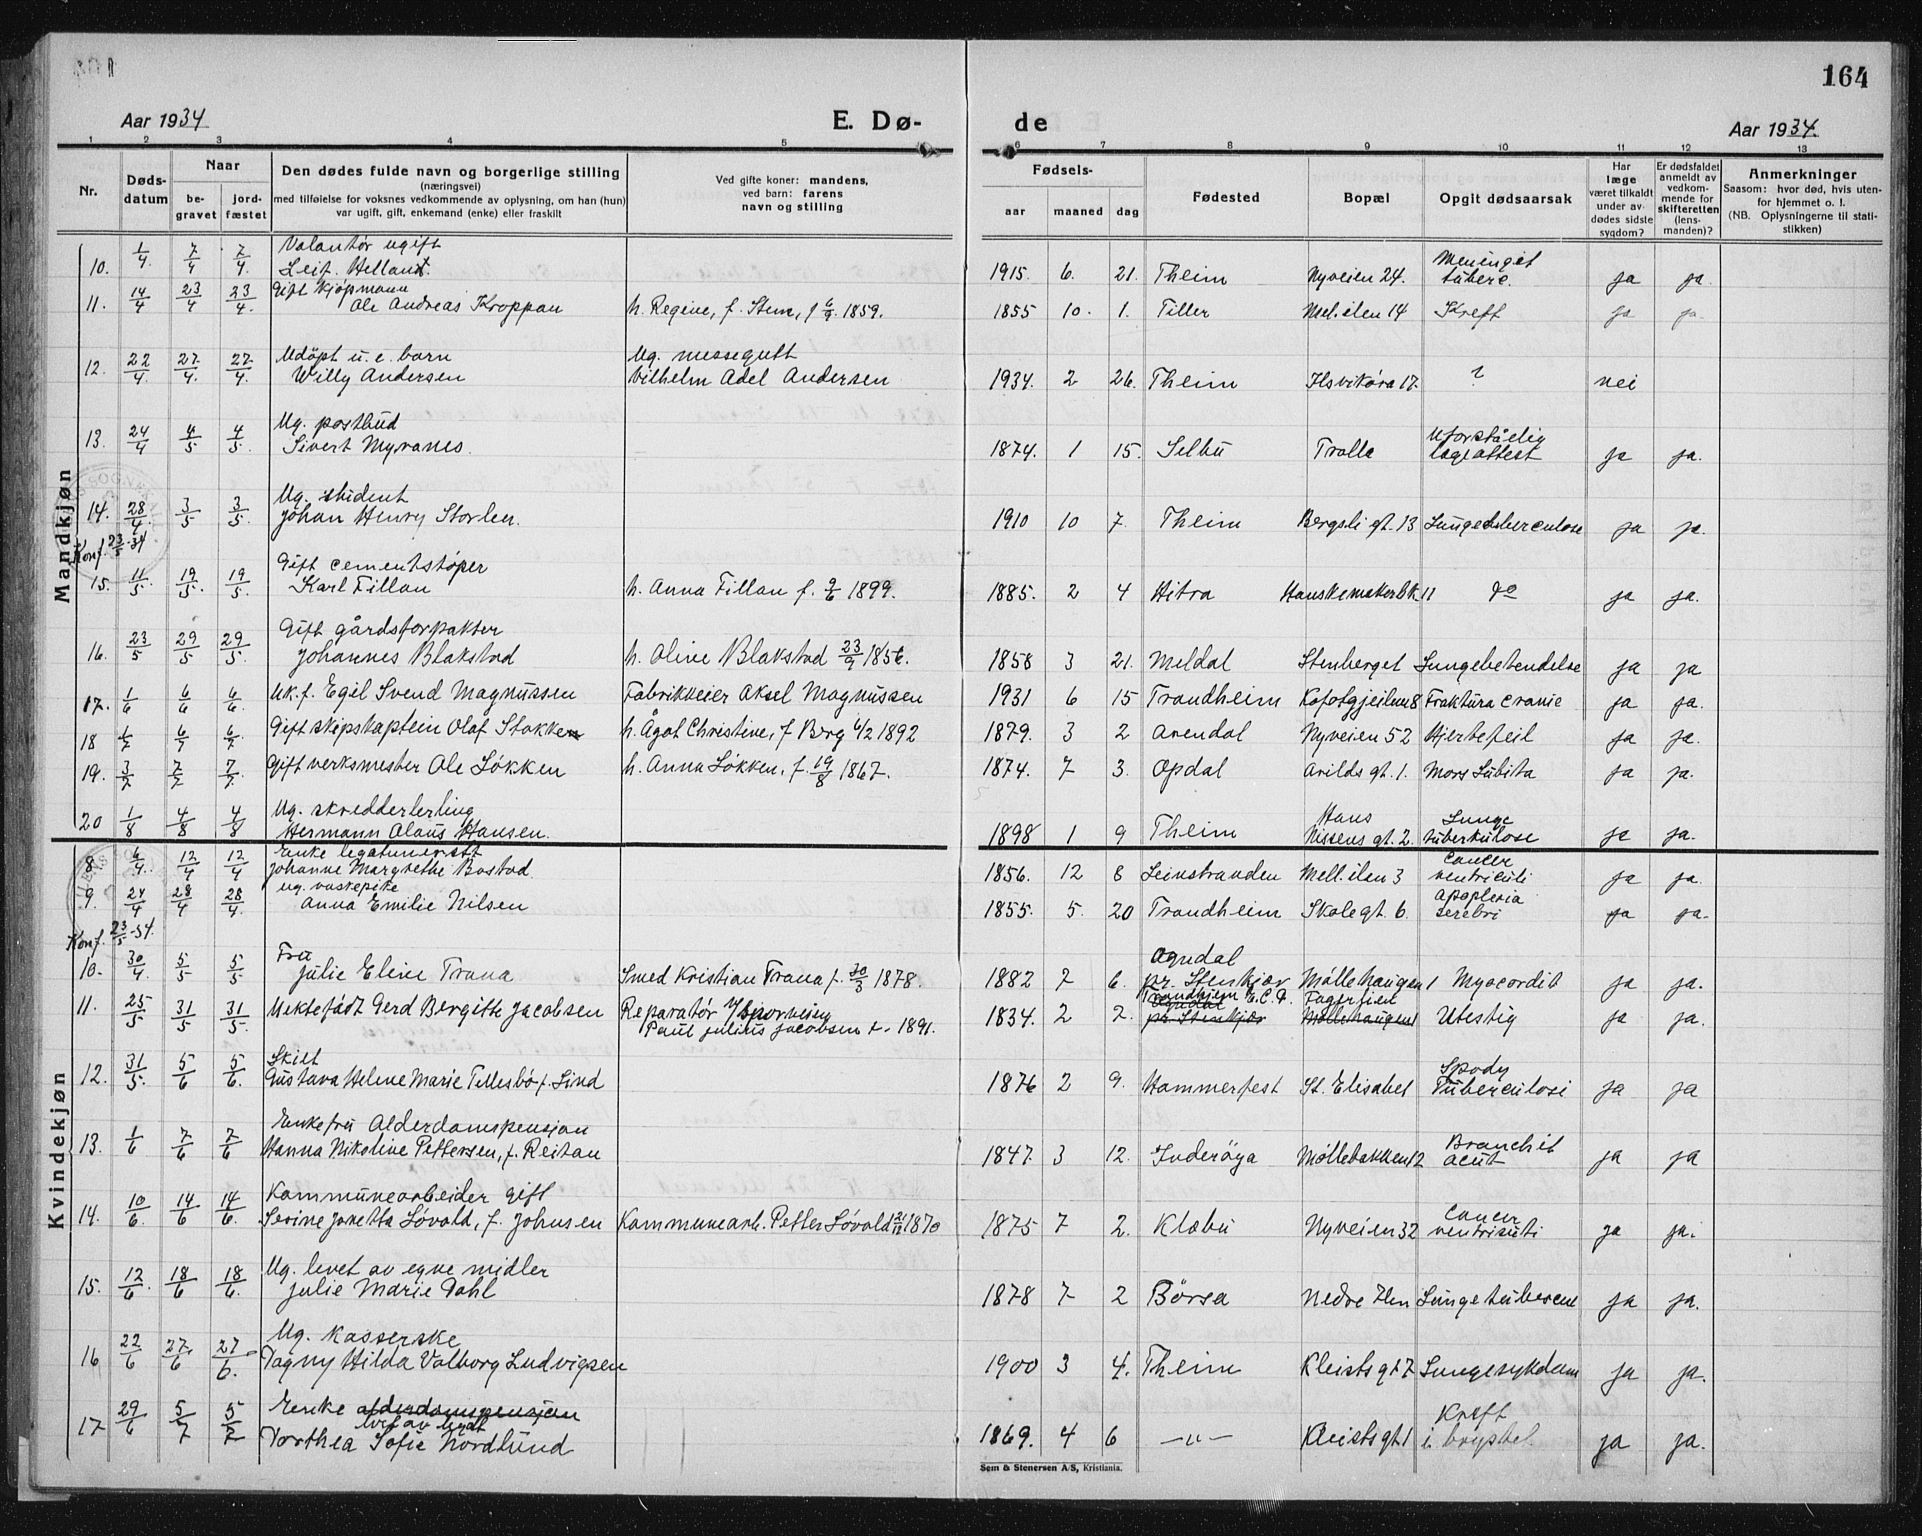 164
Aar 1934
E. Dø-
de
Aar 1934.
1 2 3 4 5 6 7 8 9 10 11 12 13
Nr.
Døds-
datum
Naar
be-
gravet
jord-
fæstet
Den dødes fulde navn og borgerlige stilling
(næringsvei)
med tilføielse for voksnes vedkommende av oplysning, om han (hun)
var ugift, gift, enkemand (enke) eller fraskilt
Ved gifte koner: mandens,
ved barn: farens
navn og stilling
Fødsels-
aar maaned dag
Fødested
Bopæl
Opgit dødsaarsak
Har
læge
været tilkaldt
under av-
dødes sidste
sygdom?
Er dødsfaldet
anmeldt av
vedkom-
mende for
skifteretten
(lens-
manden)?
Anmerkninger
Saasom: hvor død, hvis uten-
for hjemmet o. l.
(NB. Oplysningerne til stati-
stikken)
Mandkjøn
Volontør ugift
10. 1/4. 7/4 7/4. Leif Helland. 1915. 6. 21. Theim Nyveien 24. Meningit tuberc. ja ja.
Gift kjøpmann
11. 14/4 23/4 23/4. Ole Andreas Kroppan h. Regine, f. Stene, f 6/9. 1859. 1855 10. 1. Tiller Mel. ilen 14 Kreft ja ja.
Udöpt u. e. barn Ug. messegutt
12. 22/4. 27/4. 27/4. Willy Andersen Vilhelm Adel Andersen 1934. 2 26. Theim Ilsvikøra 17. ? nei
Ug. postbud
13. 24/4 4/5 4/5. Sivert Myranes. 1874. 1 15. Selbu Trolla Uforståelig lægeattest ja ja.
Ug. student
14. 28/4. 3/5 3/5. Johan Henry Storlen. 1910 10 7. Theim Bergsli gt. 13 Lungetuberculose ja ja.
Konf. 23/5-34
Gift cementstøper
15. 11/5. 19/5. 19/5. Karl Fillan h. Anna Fillan f. 9/6 1899. 1885. 2 4 Hitra Hanskemakerbk. 11 do ja ja.
Gift gårdsforpakter
16. 23/5 29/5 29/5. Johannes Blakstad h. Oline Blakstad 23/9 1856. 1858 3 21. Meldal Stenberget Lungebetendelse ja ja
17. 1/6 6/6 6/6. Uk. f. Egil Svend Magnussen Fabrikkeier Aksel Magnussen 1931 6 15 Trondheim Kofotgjeilen 8 Fraktura cranie ja ja.
18 1/7 6/7 6/7. Gift skipskaptein Olaf Stokken h. Ågot Christine, f Berg 6/2 1892 1879. 3 2 Arendal Nyveien 52 Hjertefeil ja ja.
19. 3/7 7/7 7/7. Gift verksmester Ole Løkken h. Anna Løkken, f. 19/8 1867. 1874. 7 3. Opdal Arilds gt. 1. Mors Subita ja ja.
Ug. skredderlerling
20 1/8 4/8 4/8 Hermann Olaus Hansen. 1898 1 9 Theim Hans Nissens gt. 2. Lunge tuberkulose ja ja.
Kvindekjøn
Enke legatunerstt
8 6/4. 12/4 12/4 Johanne Margrethe Bostad 1856. 12 8 Leinstranden Mell. ilen 3 Cancer ventriculi ja ja.
ug. vaskepike
9. 24/4 28/4 28/4. Anna Emilie Nilsen 1855. 5. 20 Trondheim Skolegt. 6. Apoplexia serebri ja ja.
Konf. 23/5-34.
Fru
10. 30/4. 5/5 5/5 Julie Eline Trana Smed Kristian Trana f. 30/3 1878. 1882 7 6. Ogndal pr. Stenkjær Møllehaugen 1 Myocordit ja ja.
11. 25/5 31/5 31/5. Uektefödt Gerd Bergith Jacobsen Reparatør v/ Sporveien Paul Julius Jacobsen f. 1891. 1834. 2 2. Trondhjem E.C.D. Ogndal pr. Stenkjær Fagerlien Møllehaugen 1 Utestig ja ja.
Skilt
12. 31/5. 5/6 5/6. Gustava Helene Marie Tellesbö f. Lind 1876 2 9. Hammerfest St. Elisabet Spondy Tuberculosi ja ja
Enkefru Alderdomspensjon
13. 1/6 7/6 7/6 Hanna Nikoline Pettersen, f. Reitan 1847. 3 12. Inderöya Möllebakken 12 Bronchit acut ja ja
Kommunearbeider gift
14. 10/6. 14/6 14/6. Serine Jonetta Lövold, f. Johnsen Kommunearb. Petter Lövold 1870 1875 7 2. Klæbu Nyveien 32 Cancer ventriculi ja ja.
Ug. levet av egne midler
15. 12/6. 18/6 18/6. Julie Marie Dahl 1878 7 2 Börsa Nedre Ilen Lunge tubercul ja ja.
Ug. kasserske
16 22/6 27/6 27/6. Dagny Hilda Valborg Ludvigsen 1900 3 4. Theim Kleists gt 7 Lungesykdom ja ja.
Enke alderdomspensjon
17 29/6 5/7 5/7 Dorthea Sofie Nordlund 1869. 4 6 —"— Kleists gt. 1 Kreft i brystet. ja ja.
Sem & Stenersen A/S, Kristiania.